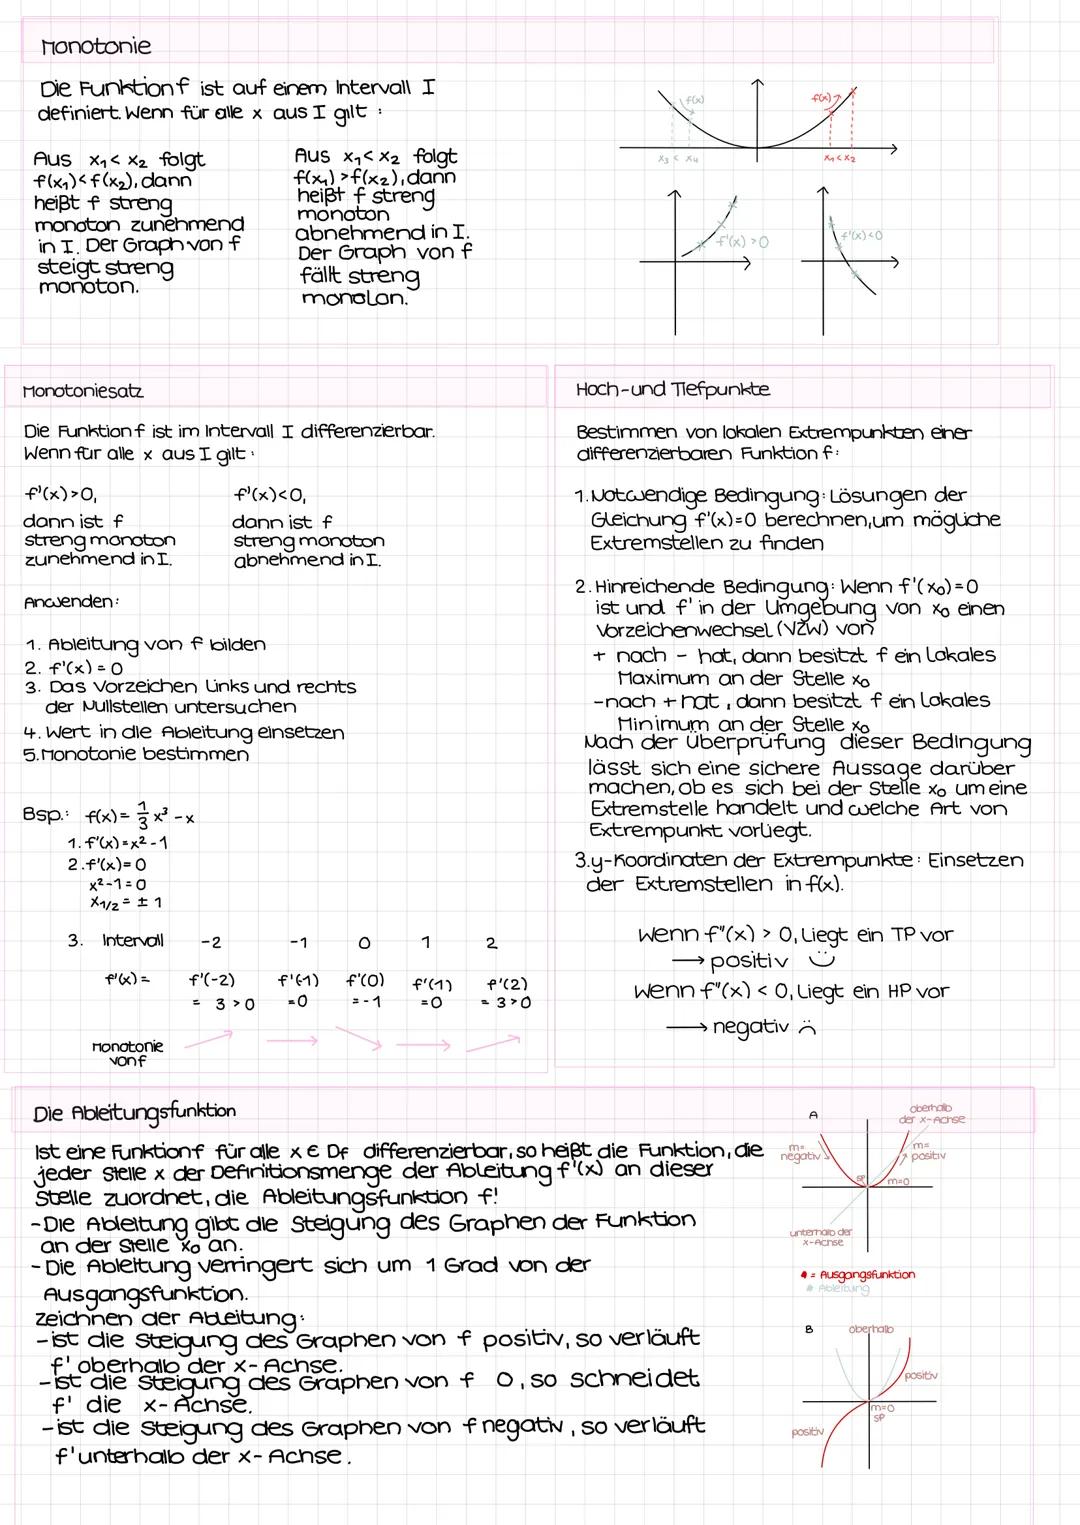 Monotonie
Die Funktion f ist auf einem Intervall I
definiert. Wenn für alle x aus I gilt :
Aus x₁< x₂ folgt
f(x₁)<f(x₂), dann
heißt f streng
monoton zunehmend
in I. Der Graph von f
steigt streng
monoton.
Aus x₁< x₂ folgt
f(x₁) >f(x₂), dann
heißt f streng
monoton
abnehmend in I.
Der Graph von f
fällt streng
monolan.
f(x)
f(x)
x₃ < x₄
x₁ < x₂
f'(x) > 0
f'(x) < 0
Monotoniesatz
Die Funktion f ist im Intervall I differenzierbar.
Wenn für alle x aus I gilt :
f'(x)>0,
dann ist f
streng monoton
zunehmend in I.
f'(x)<0,
dann ist f
streng monoton
abnehmend in I.
Anwenden:
1. Ableitung von f bilden
2. f'(x) = 0
3. Das Vorzeichen links und rechts
der Nullstellen untersuchen
4. Wert in die Ableitung einsetzen
5. Monotonie bestimmen
Bsp.: f(x)= 1/3 x³ - x
1. f'(x)=x² - 1
2. f'(x)= 0
x² - 1 = 0
x₁/₂ = ± 1
3. Intervall -2 -1 0 1 2
f'(x) = f'(-2) f'(-1) f'(0) f'(1) f'(2)
= 3 > 0 =0 = -1 =0 = 3 > 0
Monotonie
von f
Hoch-und Tiefpunkte
Bestimmen von lokalen Extrempunkten einer
differenzierbaren Funktion f:
1. Notwendige Bedingung: Lösungen der
Gleichung f'(x)=0 berechnen, um mögliche
Extremstellen zu finden
2. Hinreichende Bedingung: Wenn f'(x₀)=0
ist und f' in der Umgebung von x₀ einen
Vorzeichenwechsel (VZW) von
+ nach - hat, dann besitzt f ein lokales
Maximum an der Stelle x₀
-nach + hat, dann besitzt f ein lokales
Minimum an der Stelle x₀
Nach der Überprüfung dieser Bedingung
lässt sich eine sichere Aussage darüber
machen, ob es sich bei der Stelle x₀ um eine
Extremstelle handelt und welche Art von
Extrempunkt vorliegt.
3. y-Koordinaten der Extrempunkte: Einsetzen
der Extremstellen in f(x).
Wenn f"(x) > 0, liegt ein TP vor
→ positiv ☺
Wenn f"(x) < 0, liegt ein HP vor
→ negativ ☹
Die Ableitungsfunktion
Ist eine Funktion f für alle x ∈ Df differenzierbar, so heißt die Funktion, die
jeder Stelle x der Definitionsmenge der Ableitung f'(x) an dieser
Stelle zuordnet, die Ableitungsfunktion f'.
-Die Ableitung gibt die Steigung des Graphen der Funktion
an der Stelle x₀ an.
-Die Ableitung verringert sich um 1 Grad von der
Ausgangsfunktion.
zeichnen der Ableitung:
-ist die Steigung des Graphen von f positiv, so verläuft
f' oberhalb der x-Achse.
-ist die Steigung des Graphen von f 0, so schneidet
f' die x-Achse.
-ist die Steigung des Graphen von f negativ, so verläuft
f' unterhalb der x-Achse.
A
oberhalb
der x-Achse
m=
negativ
m=
positiv
SP
m=0
unterhalb der
x-Achse
= Ausgangsfunktion
= Ableitung
B
oberhalb
positiv
m=0
SP
positiv